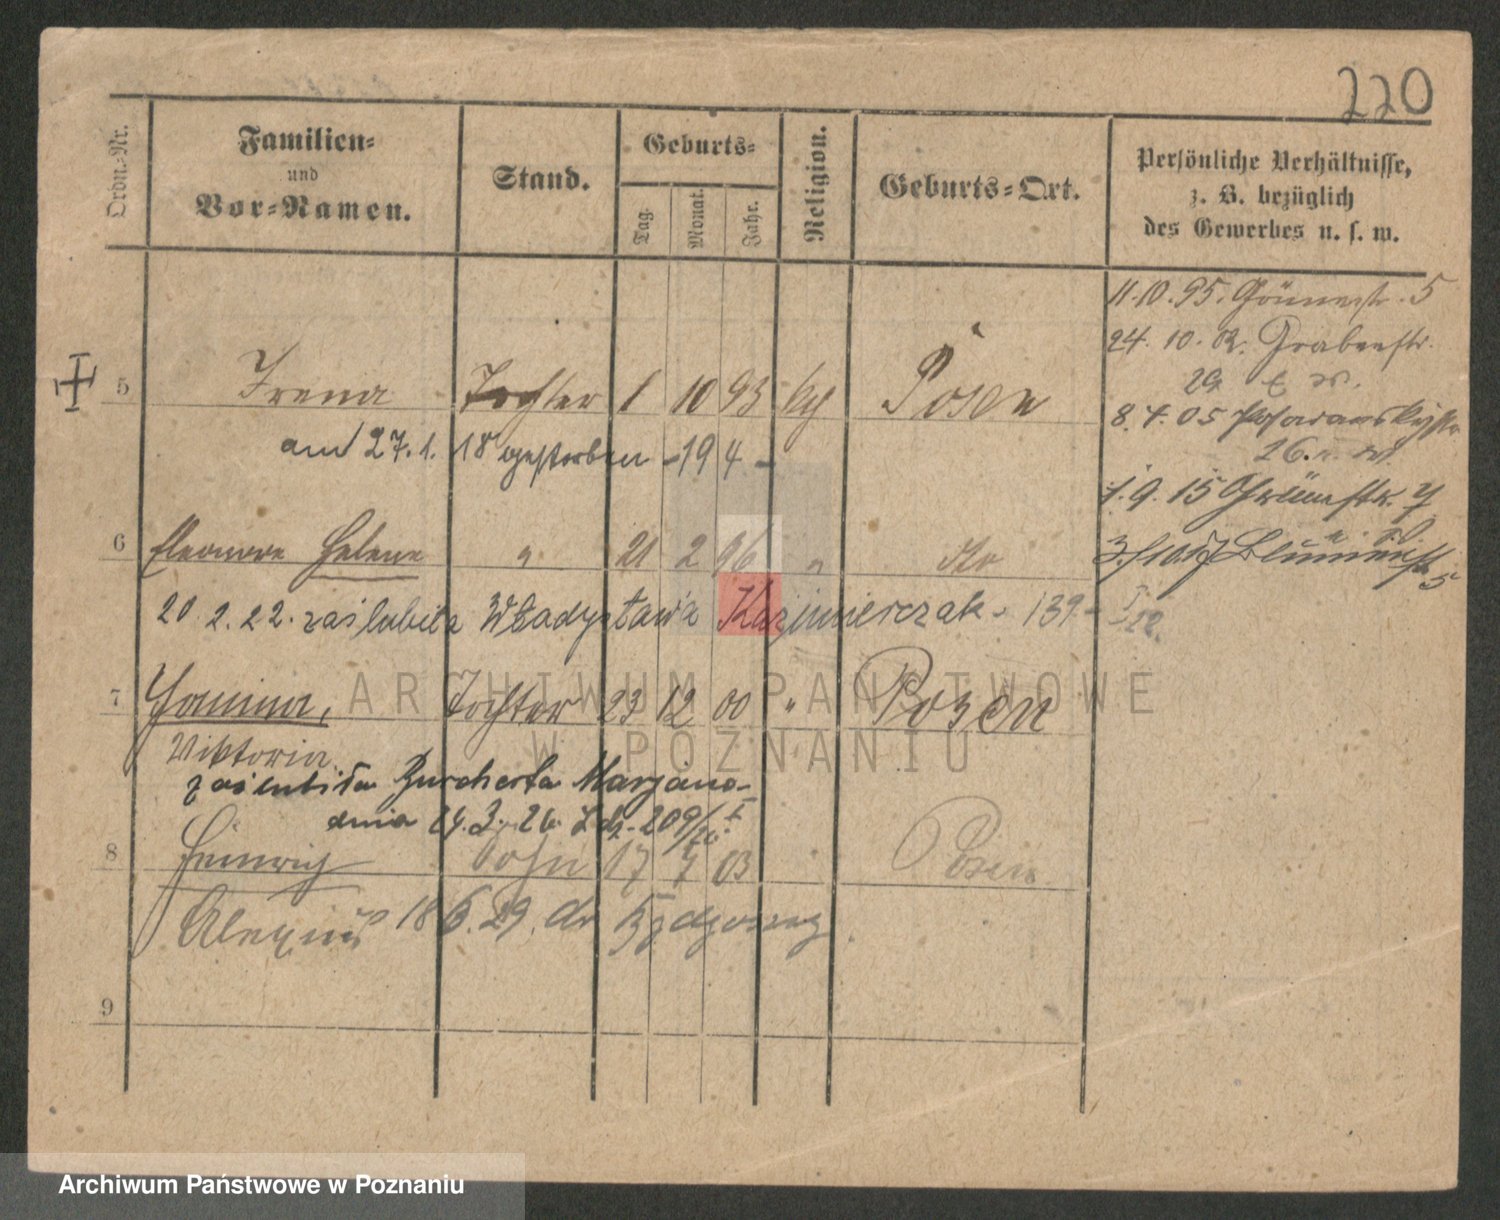 220
Ordn.-Nr.
Familien-
und
Vor-Namen.
Stand.
Geburts-
Tag.
Monat.
Jahr.
Religion.
Geburts-Ort.
Persönliche Verhältnisse,
z. B. bezüglich
des Gewerbes u. s. w.
11.10.95. 5
24. 10. 02. Grabenstr.
8. 7. 05
26.
1. 9. 15 Grünstr. 7
5
5 Irena Tochter 1 10 93 kth Posen
am 27. 1. 18 gestorben -194-
6 Eleonore Helene " 21 2 96 " dto
20. 2. 22. zaślubiła Władysława Kazimierczak - 139 - I
-22.
7 Janina, Tochter 23 12 00 " Posen
Viktoria
zaślubiła Burcherta Marjana-
dnia 24. 3. 26 Ldz. 209/I
8 Heinrich Sohn 17 7 03 Posen
Alexius 18 6. 29. do Bydgoszcz
9
ARCHIWUM PAŃSTWOWE
W POZNANIU
Archiwum Państwowe w Poznaniu